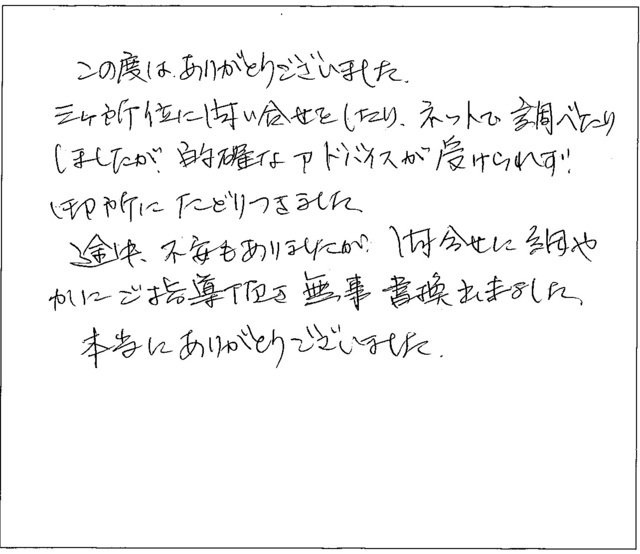 この度は、ありがとうございました。
三ヶ所位に問い合せをしたり、ネットで調べたり
しましたが、的確なアドバイスが受けられず、
にたどりつきました。
途中、不安もありましたが、問合せに細や
かにご指導頂き無事書換出来ました、
本当にありがとうございました。